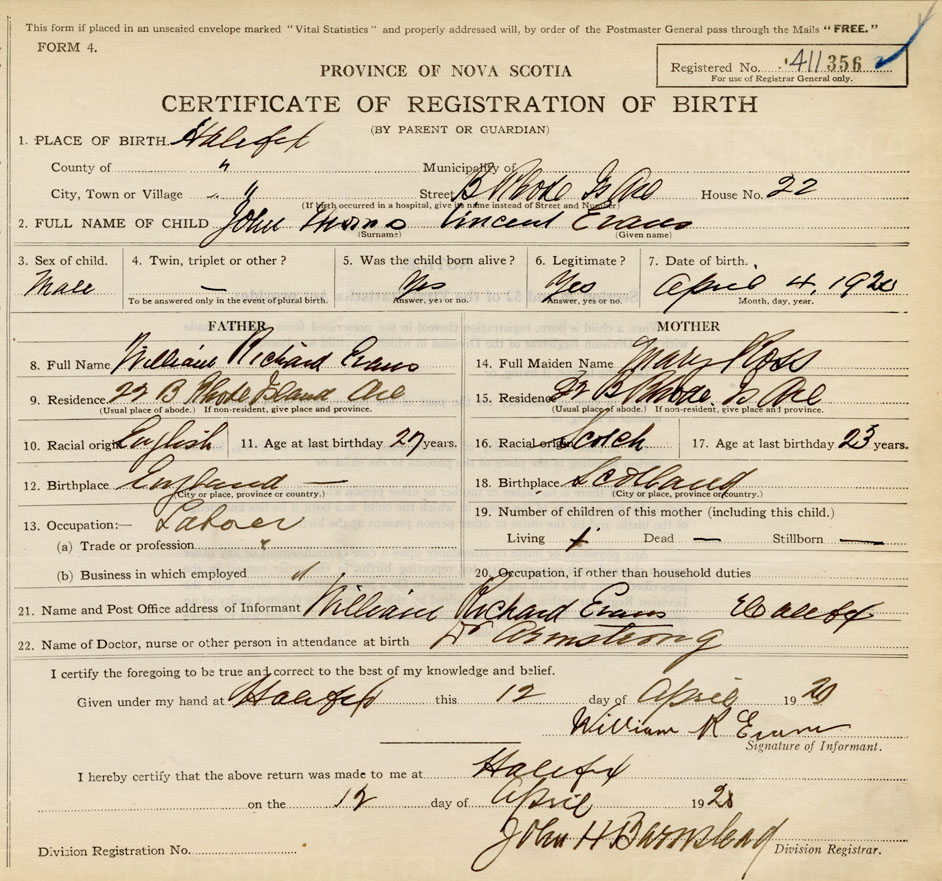 This form if placed in an unsealed envelope marked "Vital Statistics" and properly addressed will, by order of the Postmaster General pass through the Mails "FREE."
FORM 4.
Registered No. 411 356
For use of Registrar General only.
PROVINCE OF NOVA SCOTIA
CERTIFICATE OF REGISTRATION OF BIRTH
(BY PARENT OR GUARDIAN)
1. PLACE OF BIRTH. Halifax
County of " Municipality of
City, Town or Village " Street B Rhode Is Ave House No. 22
(If birth occurred in a hospital, give its name instead of Street and Number)
2. FULL NAME OF CHILD John Thomas Vincent Evans
(Surname) (Given name)
3. Sex of child. 4. Twin, triplet or other? 5. Was the child born alive? 6. Legitimate? 7. Date of birth.
Male — Yes Yes April 4, 1920
To be answered only in the event of plural birth. Answer, yes or no. Answer, yes or no. Month, day, year.
FATHER MOTHER
8. Full Name William Richard Evans 14. Full Maiden Name Mary Ross
9. Residence 22 B Rhode Island Ave 15. Residence 22 B Rhode Is Ave
(Usual place of abode.) If non-resident, give place and province. (Usual place of abode.) If non-resident, give place and province.
10. Racial origin English 11. Age at last birthday 27 years. 16. Racial origin Scotch 17. Age at last birthday 23 years.
12. Birthplace England — 18. Birthplace Scotland
(City or place, province or country.) (City or place, province or country.)
13. Occupation:— Laborer 19. Number of children of this mother (including this child.)
(a) Trade or profession " Living 1 Dead — Stillborn —
(b) Business in which employed " 20. Occupation, if other than household duties
21. Name and Post Office address of Informant William Richard Evans Halifax
22. Name of Doctor, nurse or other person in attendance at birth Dr Armstrong
I certify the foregoing to be true and correct to the best of my knowledge and belief.
Given under my hand at Halifax this 12 day of April 1920
William R Evans
Signature of Informant.
I hereby certify that the above return was made to me at Halifax
on the 12 day of April 1920
John H Barnstead
Division Registration No. Division Registrar.